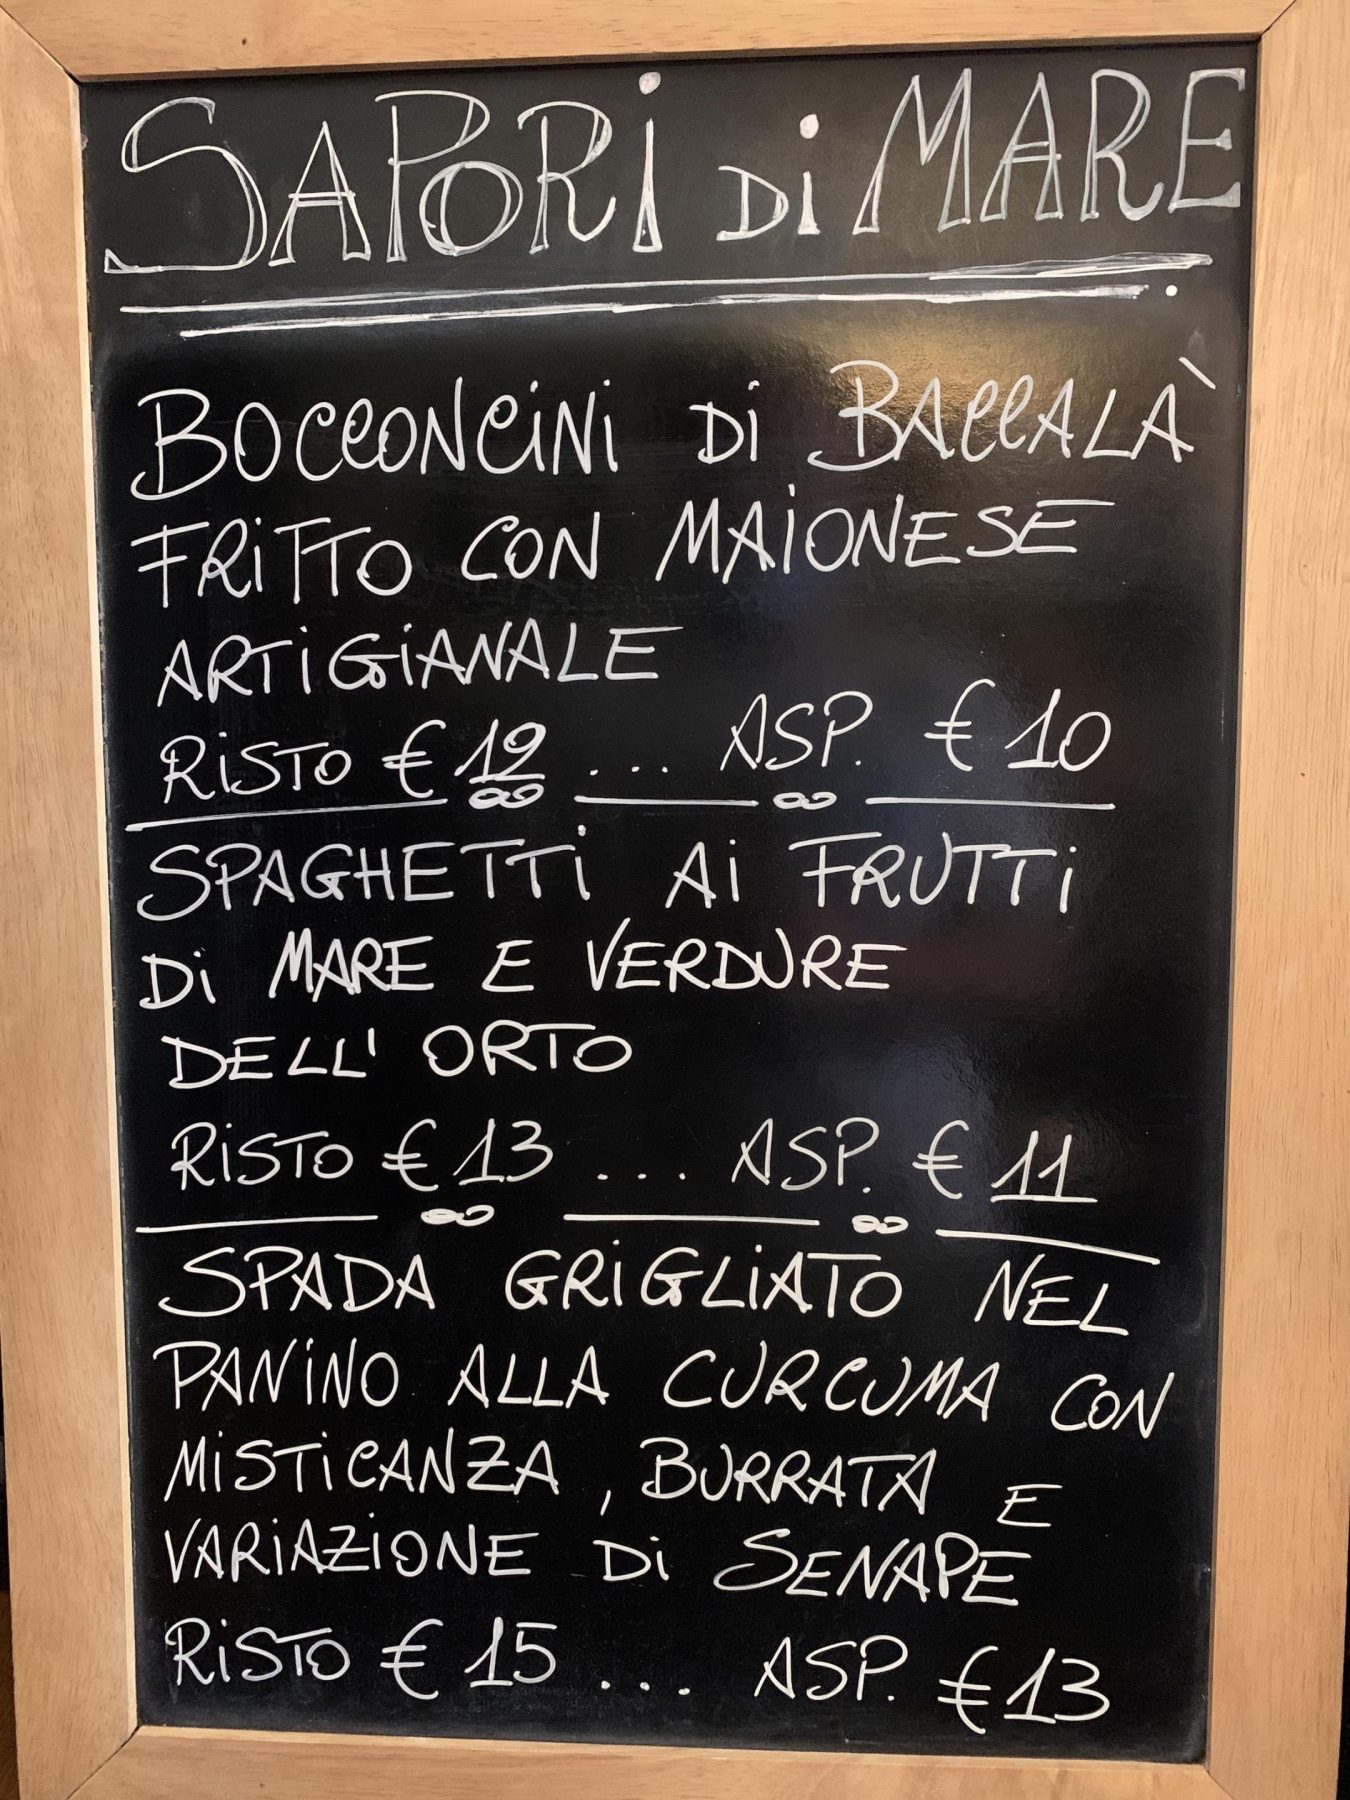 SAPORI Di MARE
BOCCONCiNi Di BACCALÀ
FRiTTO CON MAiONESE
ARTiGiANALE
RiSTO € 12 ... ASP. € 10
SPAGHETTi Ai FRUTTi
Di MARE E VERDURE
DELL' ORTO
RiSTO € 13 ... ASP. € 11
SPADA GRiGLiATO NEL
PANiNO ALLA CURCUMA CON
MiSTiCANZA, BURRATA E
VARiAZiONE Di SENAPE
RiSTO € 15 ... ASP. € 13